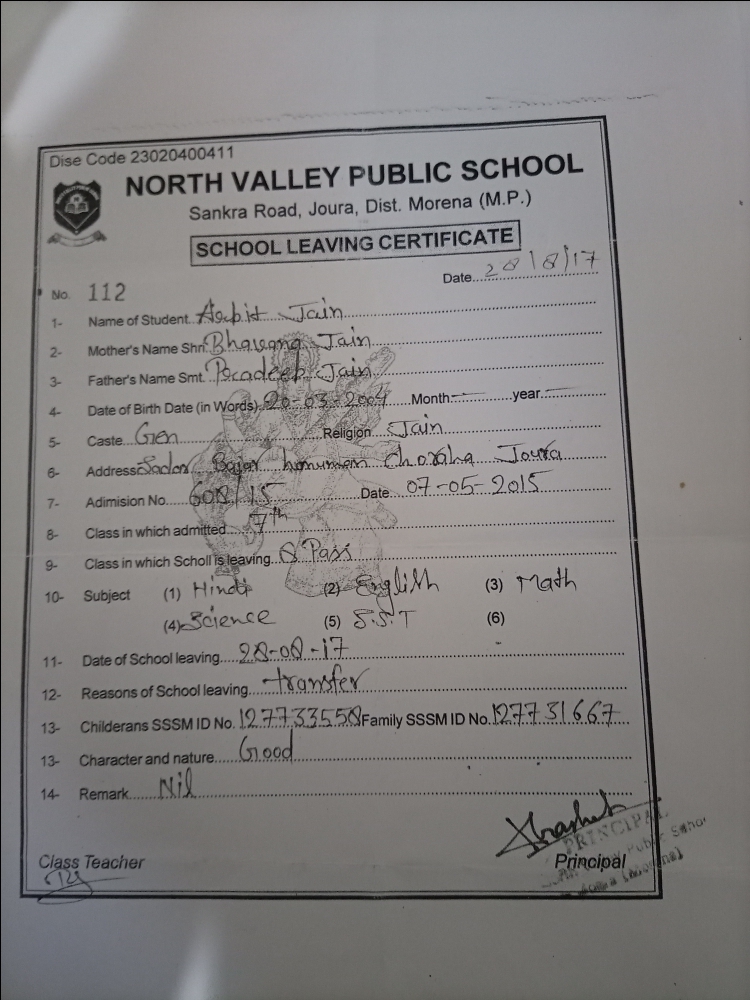 Dise Code 23020400411
NORTH VALLEY PUBLIC SCHOOL
Sankra Road, Joura, Dist. Morena (M.P.)
SCHOOL LEAVING CERTIFICATE
No. 112 Date. 28/8/17
1- Name of Student. Arbit Jain
2- Mother's Name Shri. Bhavana Jain
3- Father's Name Smt. Paradeep Jain
4- Date of Birth Date (in Words) 20-03-2004 Month year
5- Caste Gen Religion Jain
6- Address Sadar Bajar hanuman Choraha Joura
7- Adimision No. 608/15 Date 07-05-2015
8- Class in which admitted 7th
9- Class in which Scholl is leaving 8 Pass
10- Subject (1) Hindi (2) English (3) Math
(4) Science (5) S.S.T (6)
11- Date of School leaving 28-08-17
12- Reasons of School leaving transfer
13- Childerans SSSM ID No. 127733558 Family SSSM ID No. 127731667
13- Character and nature Good
14- Remark Nil
PRINCIPAL
Class Teacher Principal
Public School
Joura (Morena)